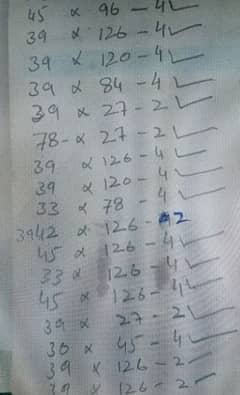 45 x 96 - 4 ✓
39 x 126 - 4 ✓
39 x 120 - 4 ✓
39 x 84 - 4 ✓
39 x 27 - 2 ✓
78 - x 27 - 2 ✓
39 x 126 - 4 ✓
39 x 120 - 4 ✓
33 x 78 - 4 ✓
3942 x 126 - 2
45 x 126 - 4 ✓
33 x 126 - 4 ✓
45 x 126 - 4 ✓
39 x 27 - 2 ✓
30 x 45 - 4 ✓
39 x 126 - 2 ✓
39 x 126 - 2 ✓